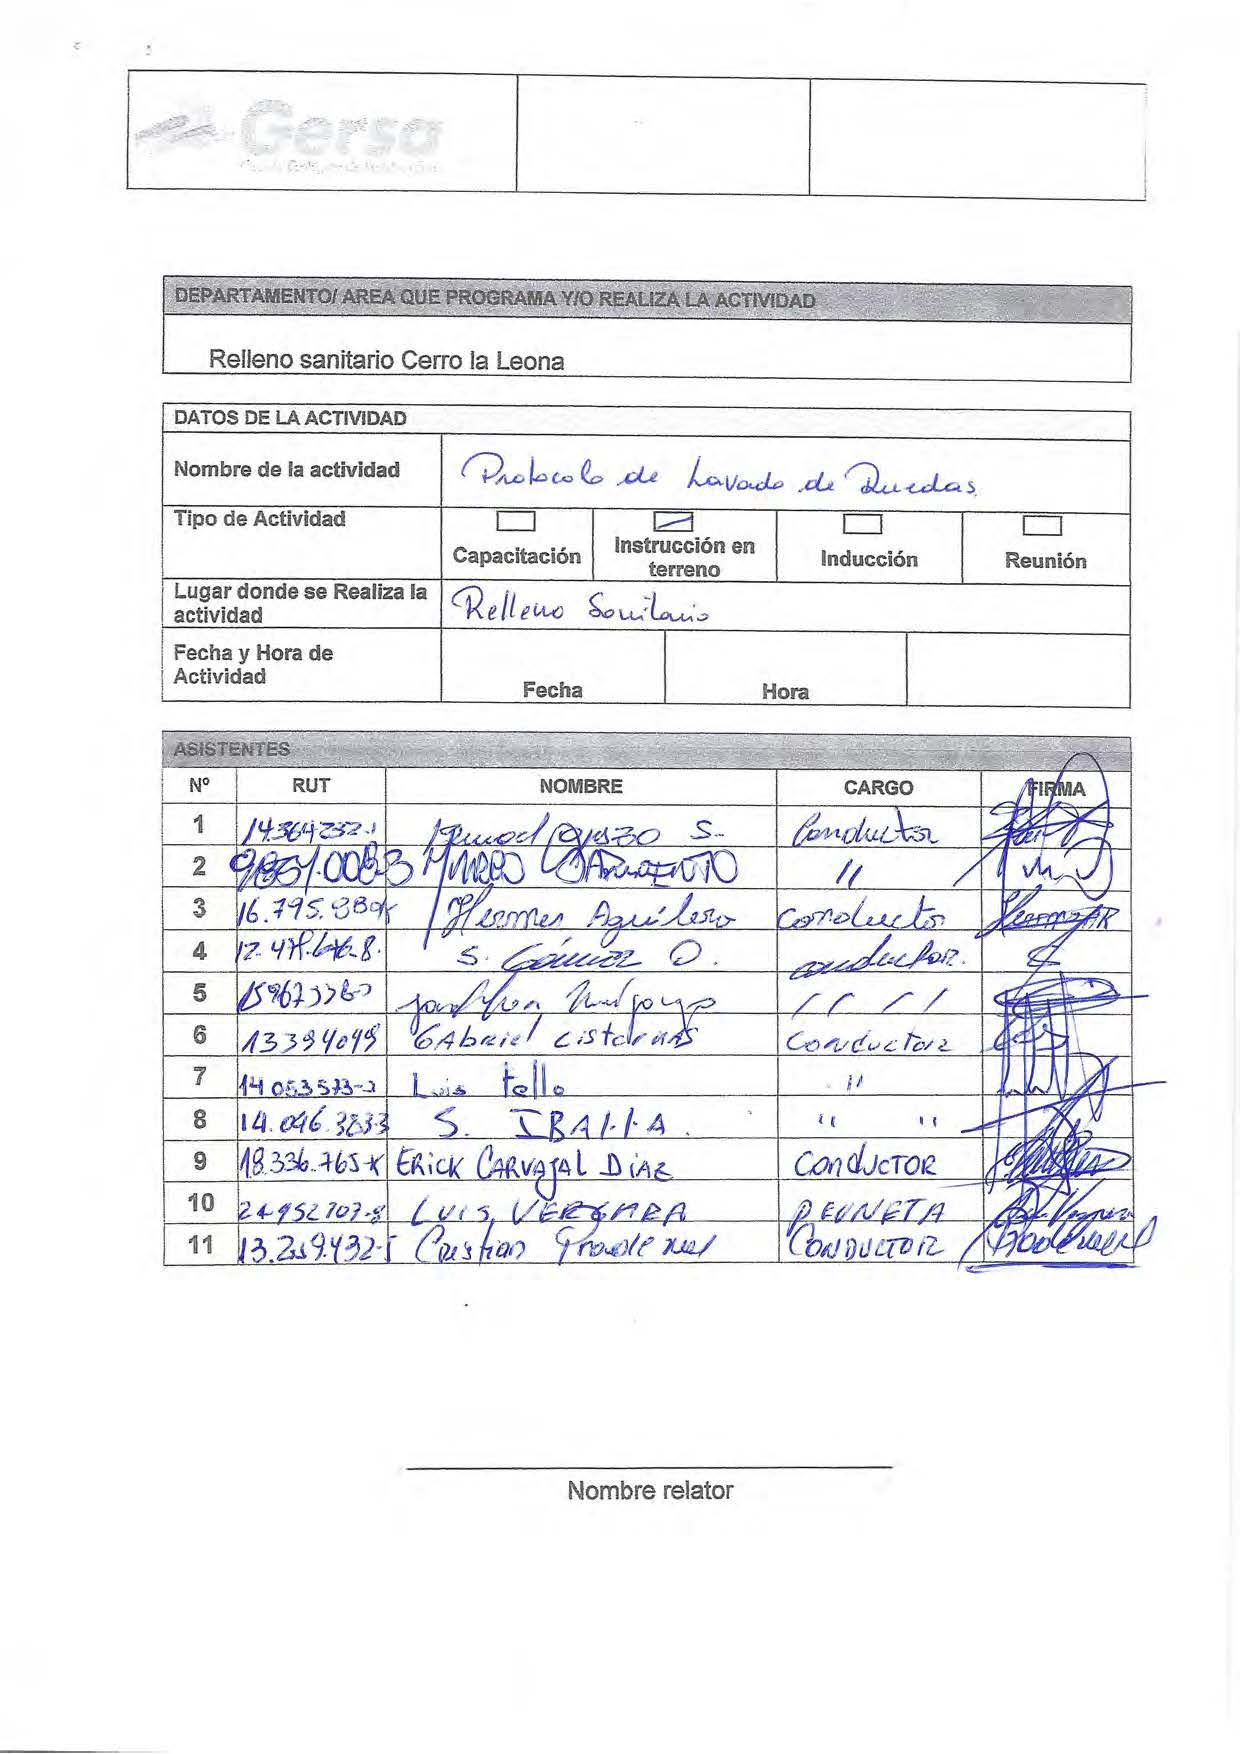 Gersa
DEPARTAMENTO/ AREA QUE PROGRAMA Y/O REALIZA LA ACTIVIDAD
Relleno sanitario Cerro la Leona
DATOS DE LA ACTIVIDAD
Nombre de la actividad Protocolo de Lavado de Ruedas
Tipo de Actividad
Capacitación Instrucción en terreno Inducción Reunión
Lugar donde se Realiza la actividad Relleno Sanitario
Fecha y Hora de Actividad
Fecha Hora
ASISTENTES
Nº RUT NOMBRE CARGO FIRMA
1 14.364232-1 S. Conductor
2 SARMIENTO "
3 16.795. Hermes Aguilera Conducto
4 S. Gómez O. conductor.
5 " "
6 13394049 GAbriel cisternas Conductor
7 14053573-2 Luis tello "
8 14.046.383-3 S. IBARRA. " "
9 18.336.765-K ERiCK CARVAJAL DiAZ CONDUCTOR
10 24952707-8 LUIS VERGARA PEONETA
11 13.259.432-5 Cristian CONDUCTOR
Nombre relator